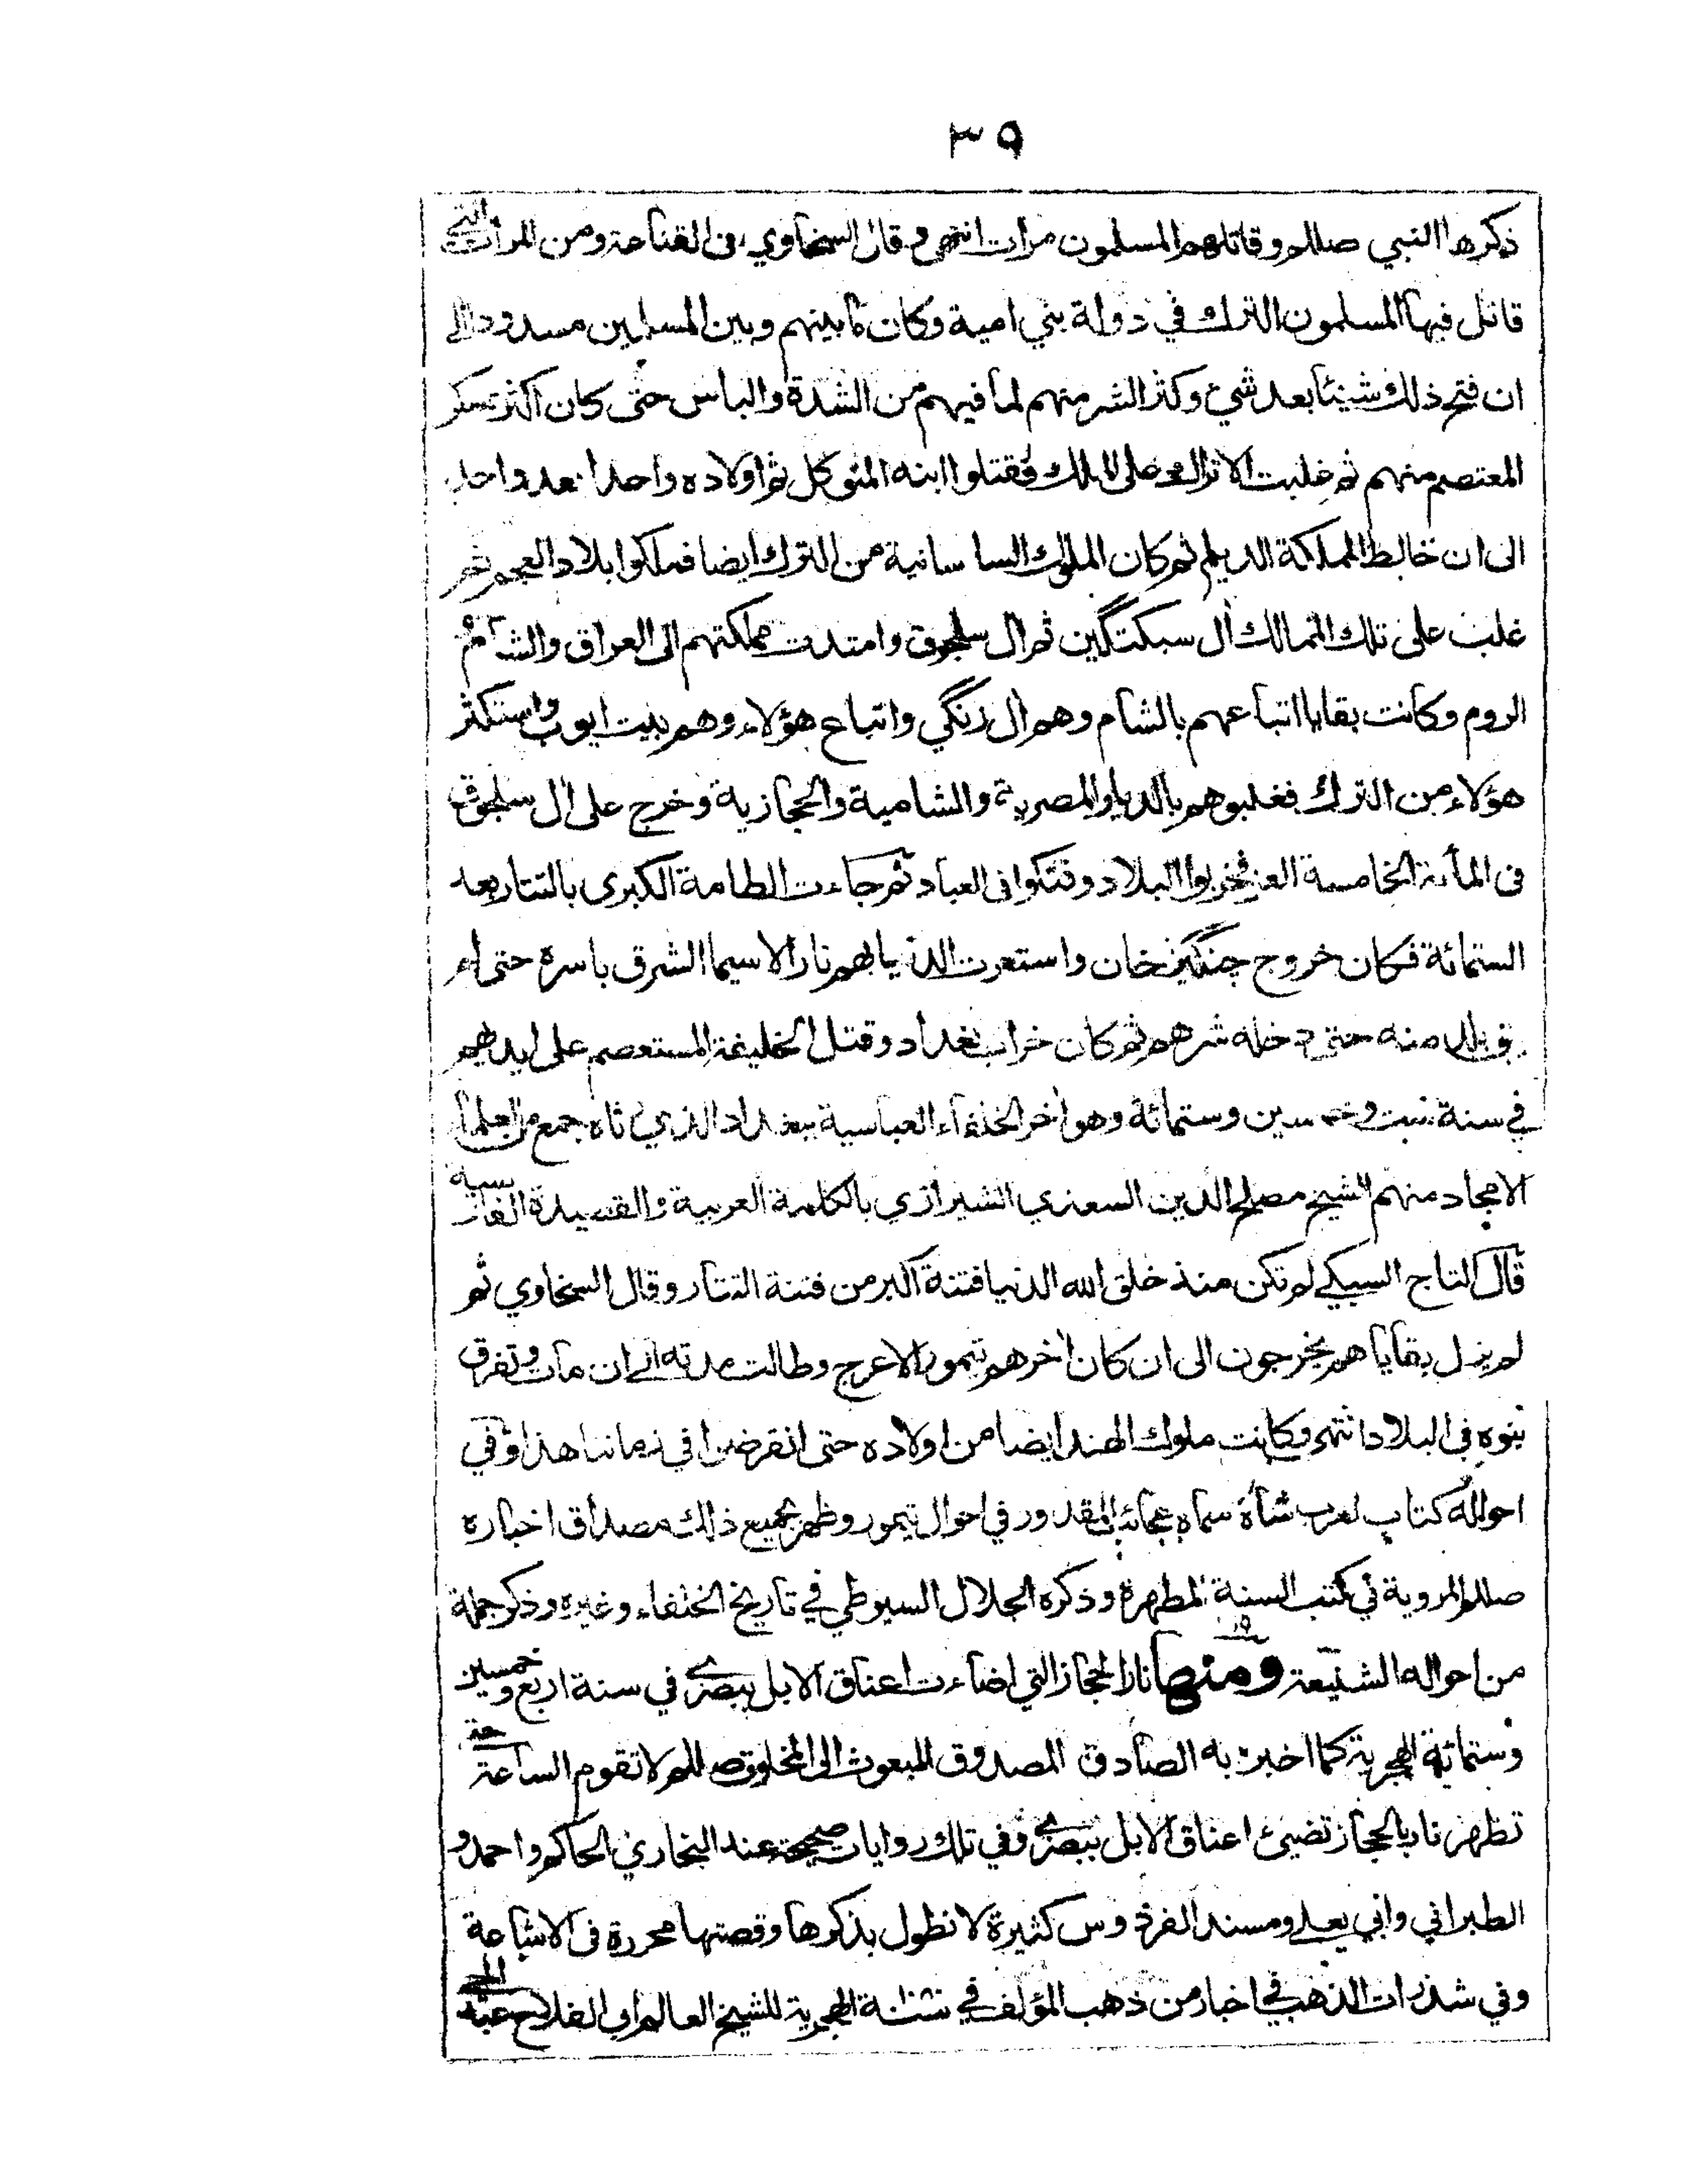 ٣٩
ذكرها النبي صللم وقاتلهم المسلمون مرات انتهى وقال السخاوي في القناعة ومن المرات التي
قاتل فيها المسلمون الترك في دولة بني امية وكان ما بينهم وبين المسلمين مسدودا الى
ان فتح ذلك شيئا بعد شيء وكثر الشر منهم لما فيهم من الشدة والباس حتى كان اكثر عسكر
المعتصم منهم ثم غلبت الاتراك على الملك فقتلوا ابنه المتوكل ثم اولاده واحدا بعد واحد
الى ان خالط المملكة الديلم ثم كان الملوك السا سانية من الترك ايضا فملكوا بلاد العجم ثم
غلب على تلك الممالك آل سبكتگين ثم آل سلجوق وامتدت مملكتهم الى العراق والشام و
الروم وكانت بقايا اتباعهم بالشام وهم آل زنگي واتباع هؤلاء وهم بيت ايوب واستكثر
هؤلاء من الترك فغلبوهم بالديار المصرية والشامية والحجازية وخرج على آل سلجوق
في المأئة الخامسة الغز فخربوا البلاد وفتكوا في العباد ثم جاءت الطامة الكبرى بالتتار بعد
الستمائة فكان خروج چنگيز خان واستعرت الدنيا بهم نارا لاسيما الشرق باسره حتى لم
يبق بلد منه حتى دخله شرهم ثم كان خراب بغداد وقتل الخليفة المستعصم على ايديهم
في سنة ست وخمسين وستمائة وهو آخر الخلفاء العباسية ببغداد الذي رثاه جمع من العلماء
الامجاد منهم الشيخ مصلح الدين السعدي الشيرازي بالكلمة العربية والقصيدة الفارسية
قال التاج السبكي لم تكن منذ خلق الله الدنيا فتنة اكبر من فتنة التتار وقال السخاوي ثم
لم يزل بقاياهم يخرجون الى ان كان آخرهم تيمور الاعرج وطالت مدته الى ان مات وتفرق
بنوه في البلاد انتهى وكانت ملوك الهند ايضا من اولاده حتى انقرضوا في زماننا هذا وفي
احواله كتاب لعرب شاه سماه عجائب المقدور في احوال تيمور وظهر بجميع ذلك مصداق اخباره
صللم المروية في كتب السنة المطهرة وذكره الجلال السيوطي في تاريخ الخلفاء وغيره وذكر جملة
من احواله الشنيعة ومنها نار الحجاز التي اضاءت اعناق الابل ببصرى في سنة اربع وخمسين
وستمائة الهجرية كما اخبر به الصادق المصدوق المبعوث الى المخلوق صللم لا تقوم الساعة حتى
تظهر نار بالحجاز تضيئ اعناق الابل ببصرى وفي تلك روايات صحيحة عند البخاري الحاكم واحمد و
الطبراني وابي يعلى ومسند الفردوس كثيرة لا نطول بذكرها وقصتها محررة في الاشاعة
وفي شذرات الذهب في اخبار من ذهب المؤلف في سنة الهجرية للشيخ العالم ابي الفلاح عبد الحي